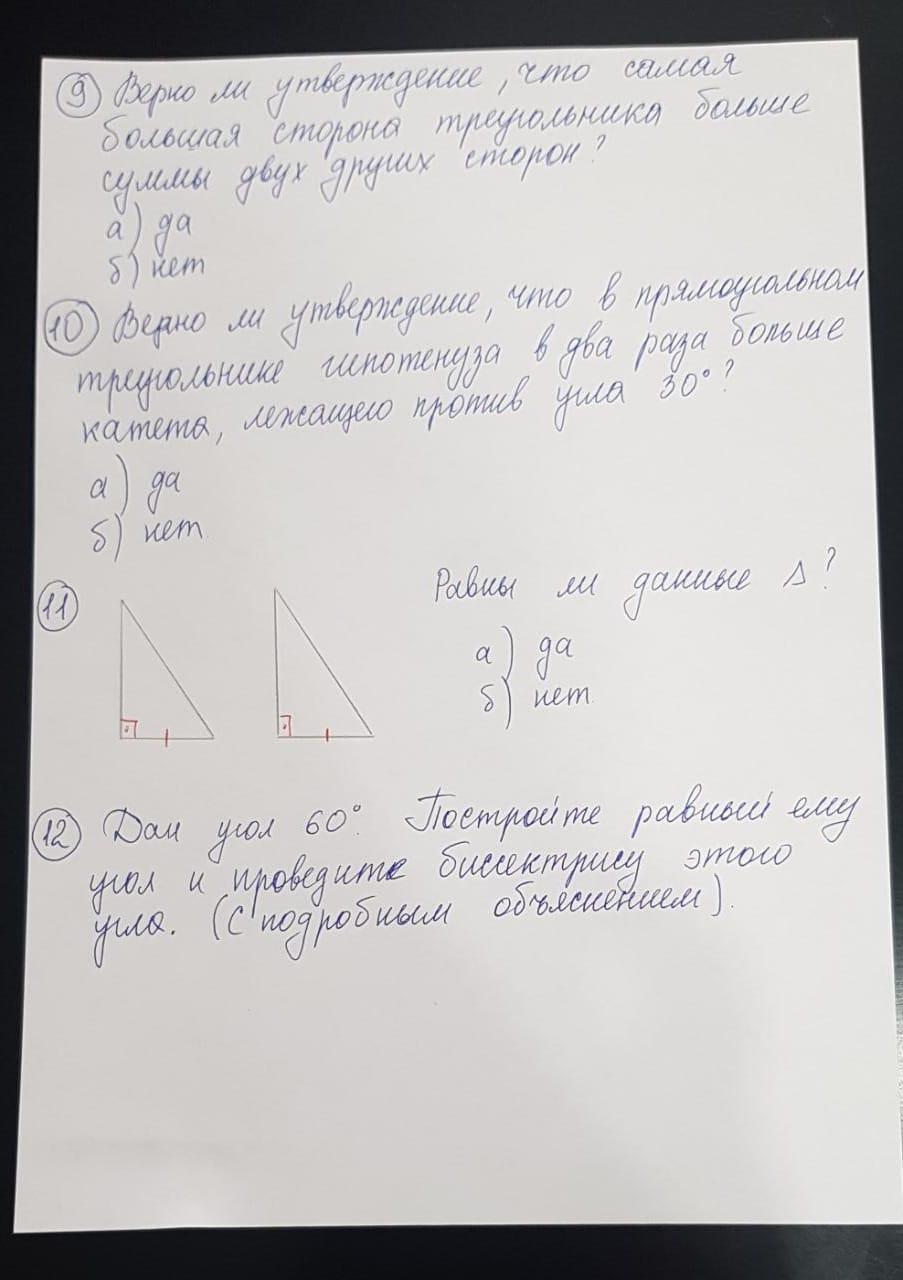 9 Верно ли утверждение, что самая
большая сторона треугольника больше
суммы двух других сторон?
а) да
б) нет
10 Верно ли утверждение, что в прямоугольном
треугольнике гипотенуза в два раза больше
катета, лежащего против угла 30°?
а) да
б) нет
11 Равны ли данные Δ?
а) да
б) нет
12 Дан угол 60°. Постройте равный ему
угол и проведите биссектрису этого
угла. (С подробным объяснением).